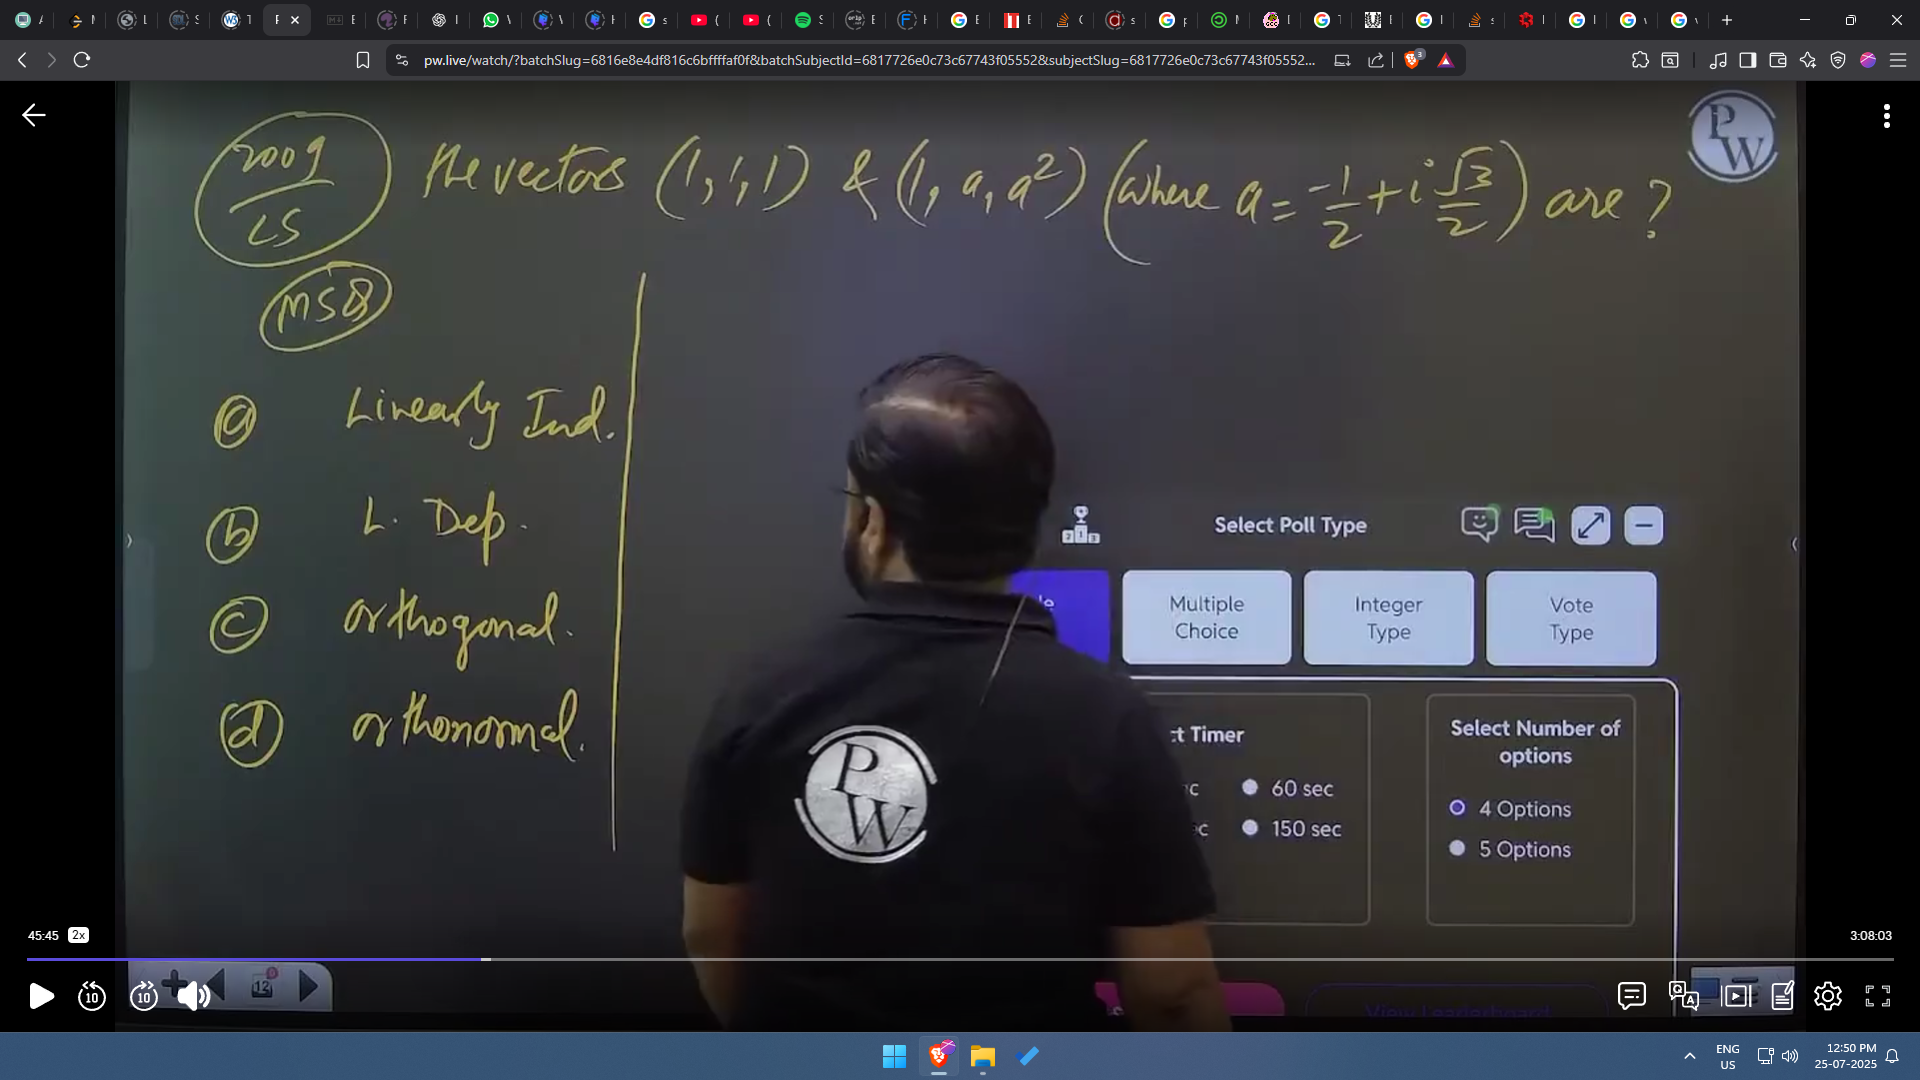 pw.live/watch/?batchSlug=6816e8e4df816c6bffffaf0f&batchSubjectId=6817726e0c73c67743f05552&subjectSlug=6817726e0c73c67743f05552...
2009
LS
the vectors (1,1,1) & (1, a, a²) (where a = -1/2 + i √3/2) are ?
PW
MSQ
(a) Linearly Ind.
(b) L. Dep.
(c) orthogonal.
(d) orthonormal.
Select Poll Type
Multiple Choice
Integer Type
Vote Type
Timer
60 sec
150 sec
Select Number of options
4 Options
5 Options
PW
45:45 2x
3:08:03
12
10 10
View Leaderboard
ENG
US
12:50 PM
25-07-2025